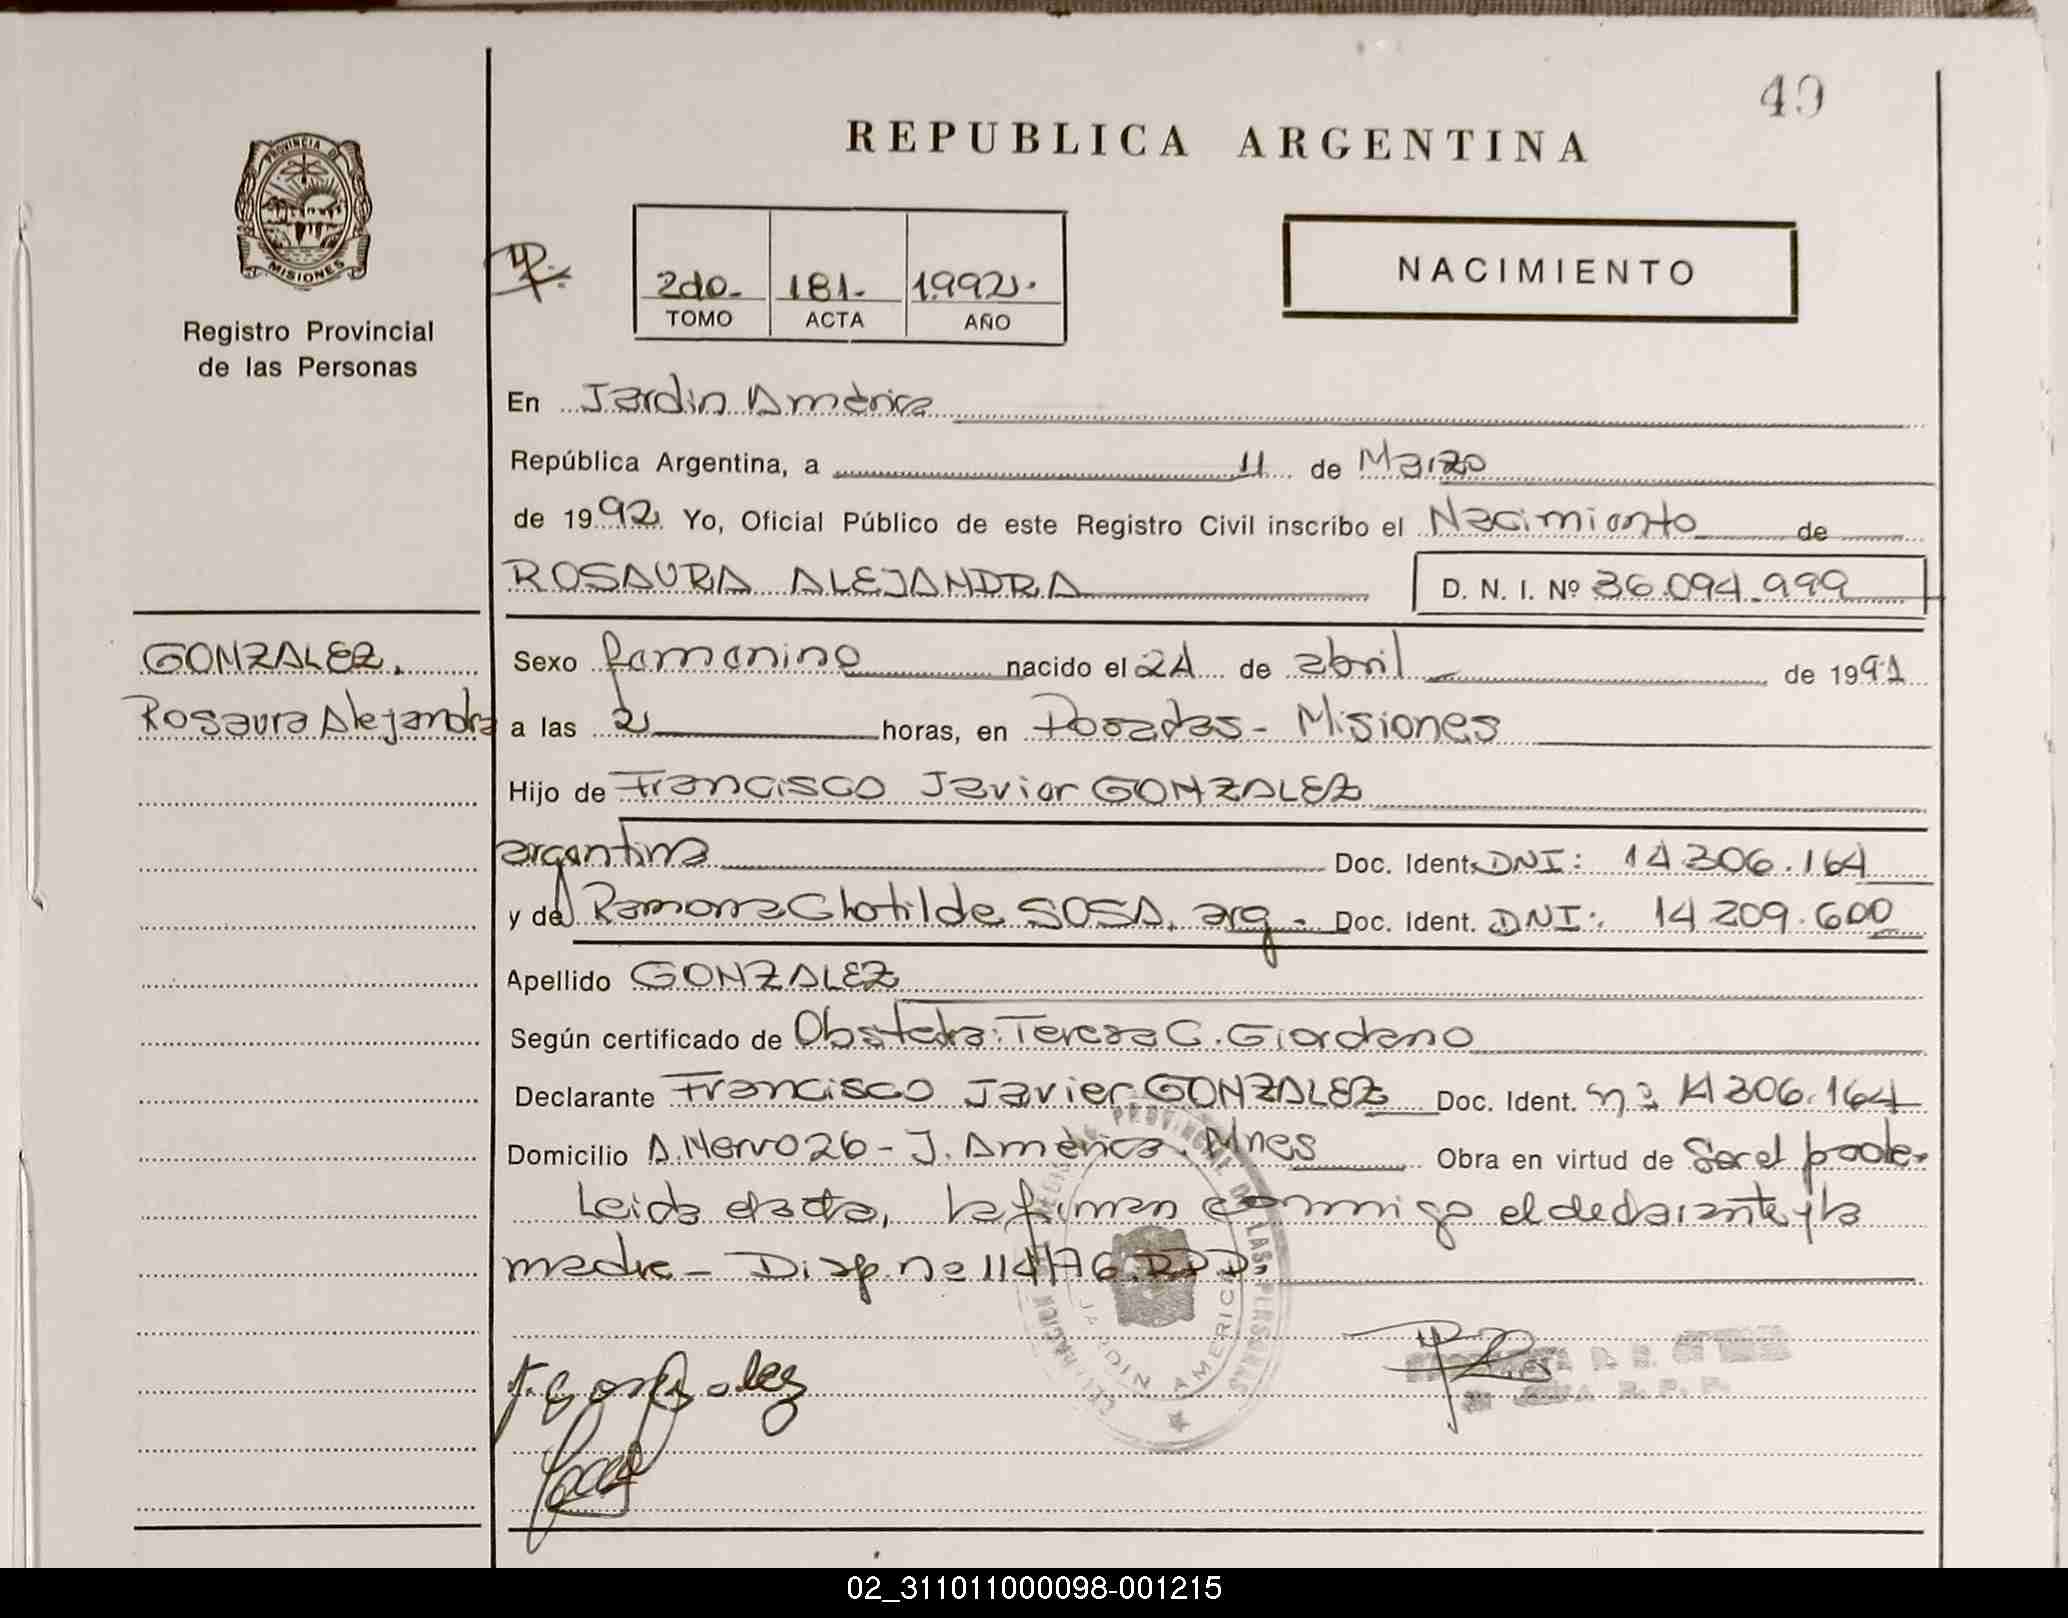 49
REPUBLICA ARGENTINA
PROVINCIA DE
MISIONES
Registro Provincial
de las Personas
2do. 181. 1992.
TOMO ACTA AÑO
NACIMIENTO
En Jardín América
República Argentina, a 11 de Marzo
de 1992 Yo, Oficial Público de este Registro Civil inscribo el Nacimiento de
ROSAURA ALEJANDRA D. N. I. Nº 36.094.999
GONZALEZ.
Rosaura Alejandra
Sexo femenino nacido el 24 de abril de 1991
a las 2 horas, en Posadas - Misiones
Hijo de Francisco Javier GONZALEZ
argentina Doc. Ident. DNI: 14.306.164
y de Ramona Clotilde SOSA, arg. Doc. Ident. DNI: 14.209.600
Apellido GONZALEZ
Según certificado de Obstetra: Teresa C. Giordano
Declarante Francisco Javier GONZALEZ Doc. Ident. nº 14.306.164
Domicilio A. Nervo 26 - J. América. Mnes Obra en virtud de Ser el padre.
Leida el acta, la firman conmigo el declarante y la
madre - Disp. nº 114/76. RPP.
PROVINCIAL DE LAS PERSONAS
JARDIN AMERICA
02_311011000098-001215